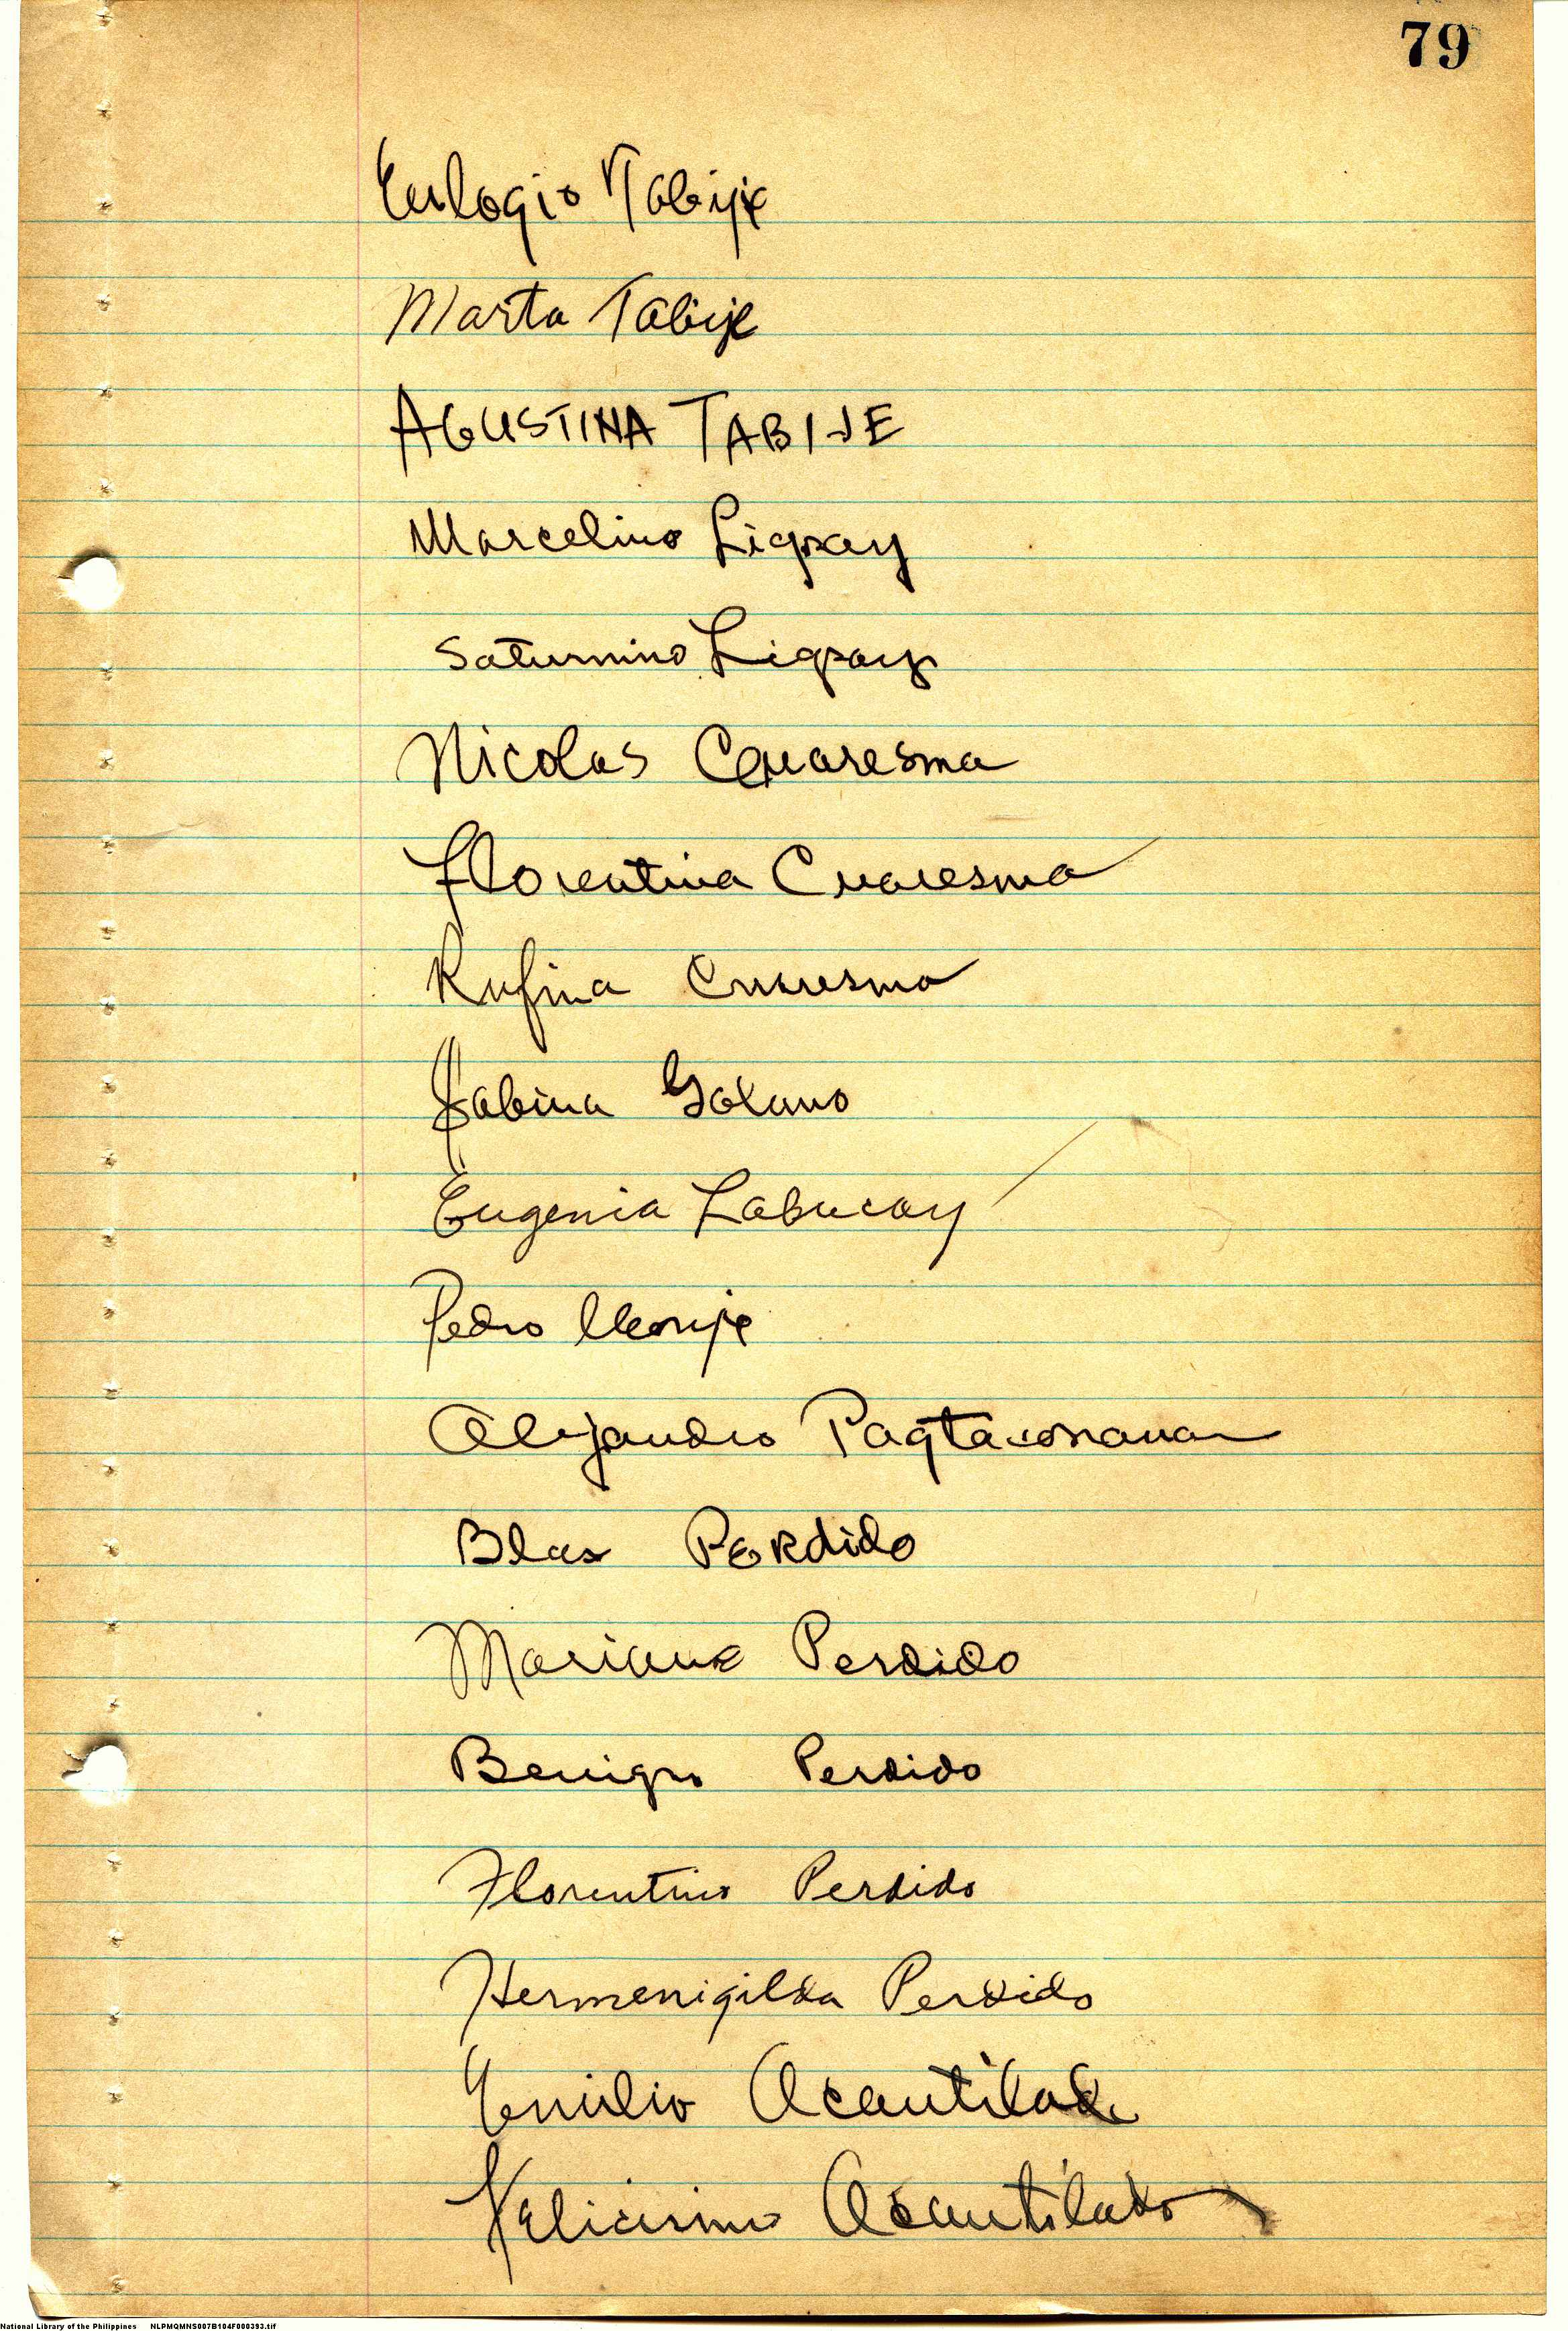 79
Eulogio Tabije
Marta Tabije
AGUSTINA TABIJE
Marcelino Ligpay
Saturnino Ligpay
Nicolas Cuaresma
Florentina Cuaresma
Rufina Cuaresma
Sabina Galano
Eugenia Labucay
Pedro
Alejandro
Blas Perdido
Mariano Perdido
Benigno Perdido
Florentino Perdido
Hermenigilda Perdido
Emilio Acantilado
Felicisimo Acantilado
National Library of the Philippines NLPMQMNS007B104F000393.tif